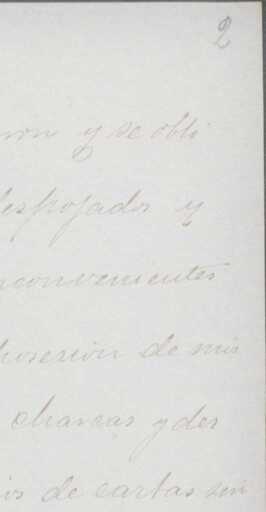 2
non y se obli
despojados y
nconvenientes
posesion de mis
charcas y des
ios de cartas sin